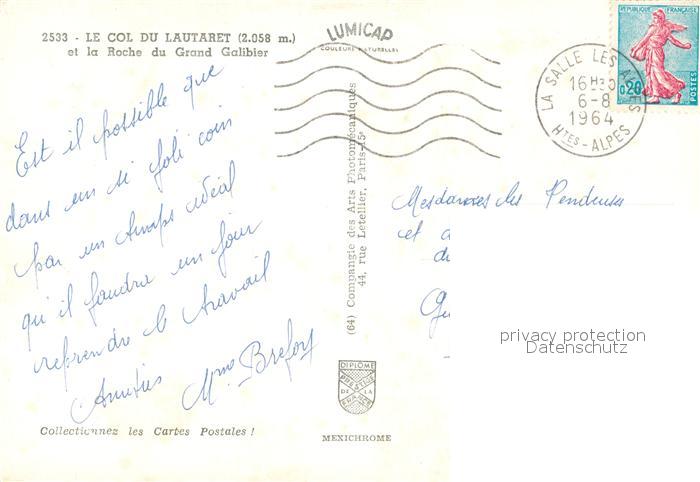 2533 - LE COL DU LAUTARET (2.058 m.)
et la Roche du Grand Galibier
LUMICAP
COULEURS NATURELLES
Est il possible que
dans un si joli coin
par un temps idéal
qu'il faudra un jour
reprendre le travail
Amitiés Mme Brefort
Collectionnez les Cartes Postales !
(64) Compangie des Arts Photomécaniques
44, rue Letellier, Paris-15e
DIPLOME
PRESTIGE
DE LA
FRANCE
MEXICHROME
LA SALLE LES ALPES
16H30
6-8
1964
HTES-ALPES
REPUBLIQUE FRANÇAISE
0,20
POSTES
Mesdames les Pendeuses
et
privacy protection
Datenschutz